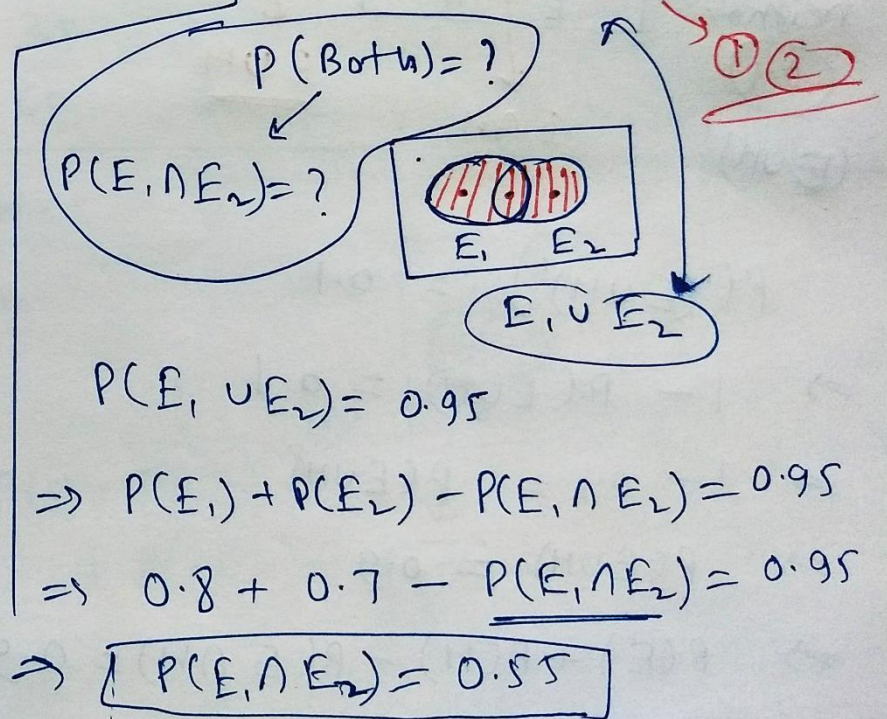 P(Both) = ?
① ②
P(E₁∩E₂) = ?
E₁ E₂
E₁ ∪ E₂
P(E₁ ∪ E₂) = 0.95
⇒ P(E₁) + P(E₂) - P(E₁ ∩ E₂) = 0.95
⇒ 0.8 + 0.7 - P(E₁∩E₂) = 0.95
⇒ P(E₁∩E₂) = 0.55